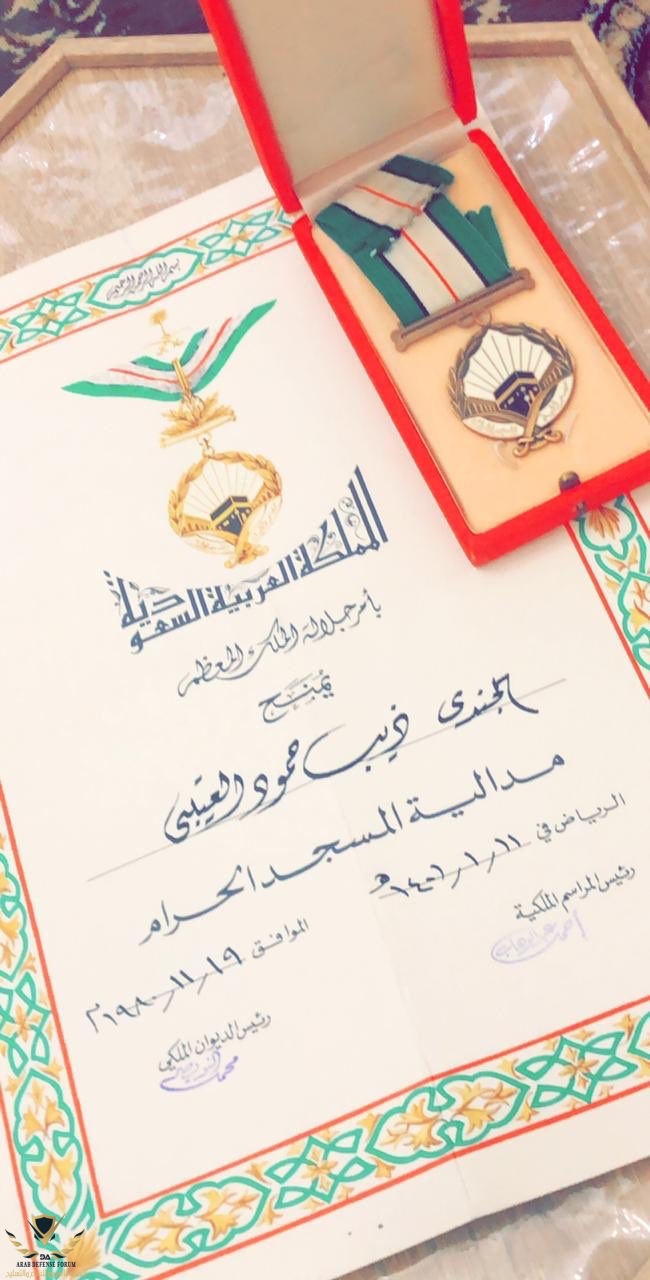 بسم الله الرحمن الرحيم
المملكة العربية السعودية
بأمر جلالة الملك المعظم
يُمنَح
الجندى ذيب حمود العتيبى
مدالية المسجد الحرام
الرياض في ١١ / ١ / ١٤٠١ هـ
الموافق ١٩ / ١١ / ١٩٨٠ م
رئيس المراسم الملكية
أحمد عبد الوهاب
رئيس الديوان الملكي
محمد النويصر
ARAB DEFENSE FORUM